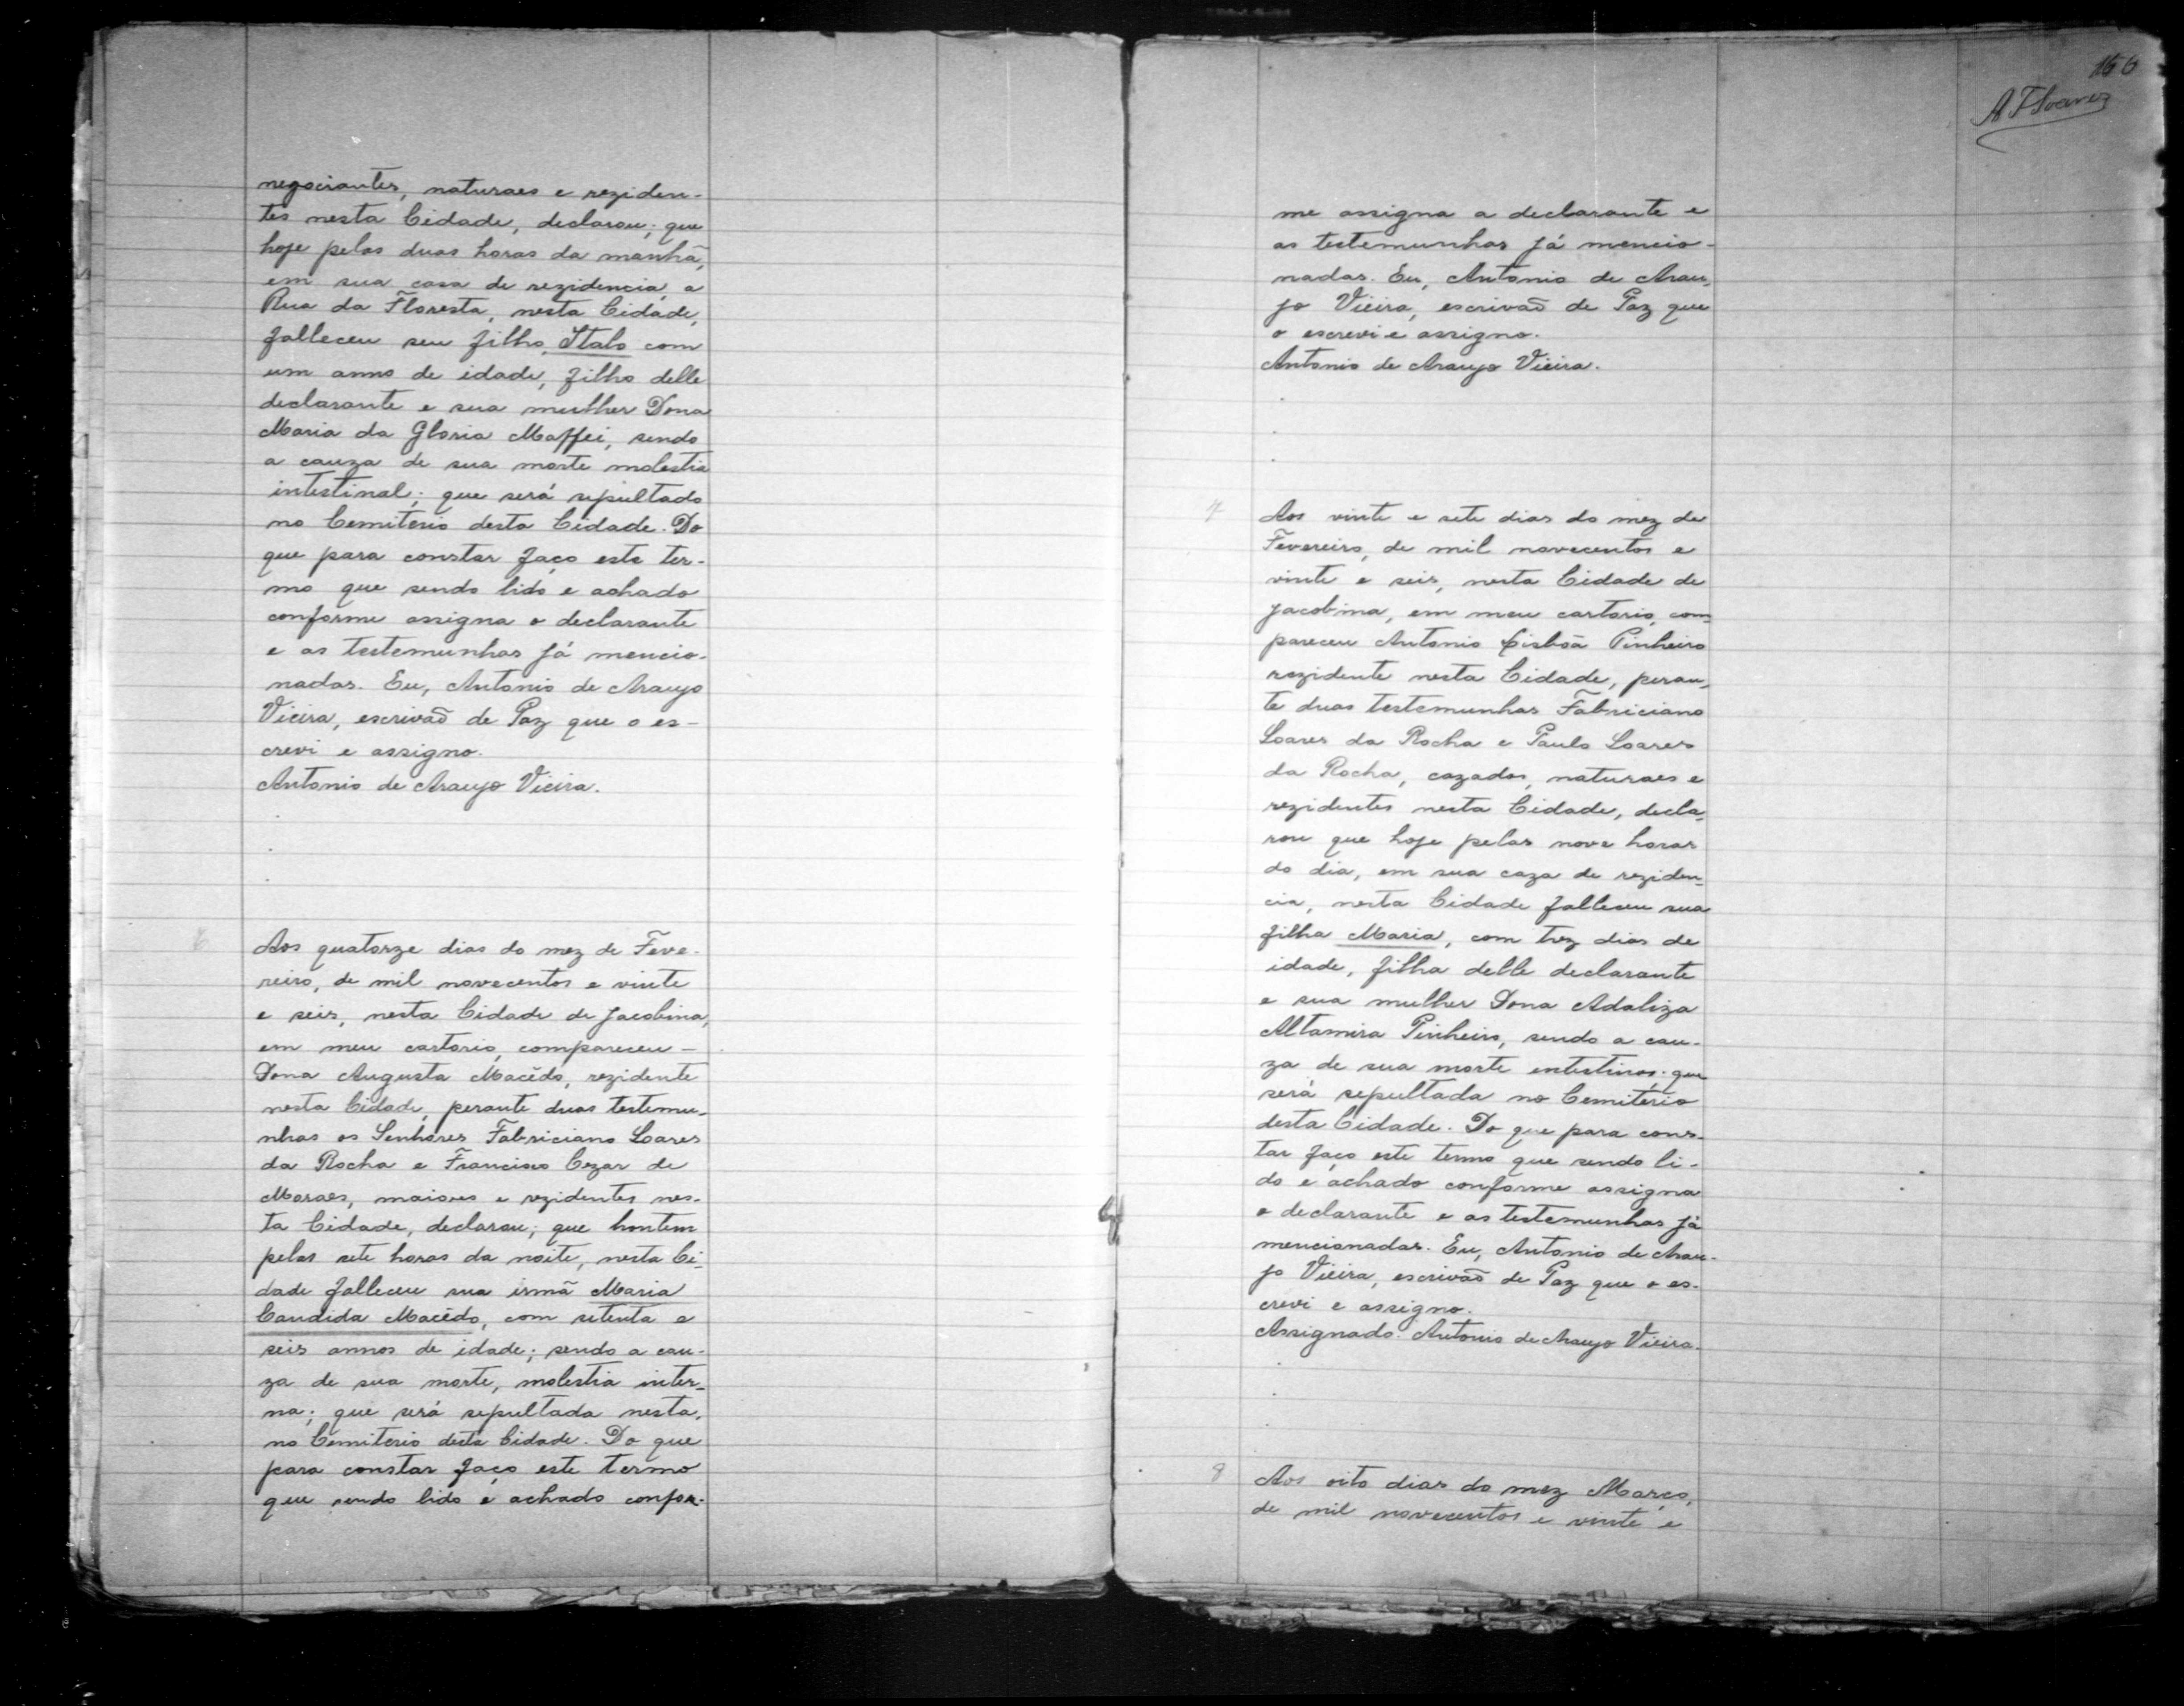 negociantes, naturaes e reziden-
tes nesta Cidade, declarou; que
hoje pelas duas horas da manhã,
em sua casa de rezidencia, a
Rua da Floresta, nesta Cidade,
falleceu seu filho, Italo com
um anno de idade, filho delle
declarante e sua mulher Dona
Maria da Gloria Maffei, sendo
a cauza de sua morte molestia
intestinal; que será sepultado
no Cemiterio desta Cidade. Do
que para constar faço este ter-
mo que sendo lido e achado
conforme assigna o declarante
e as testemunhas já mencio-
nadas. Eu, Antonio de Araujo
Vieira, escrivaõ de Paz que o es-
crevi e assigno.
Antonio de Araujo Vieira.
6
Aos quatorze dias do mez de Feve-
reiro, de mil novecentos e vinte
e seis, nesta Cidade de Jacobina,
em meu cartorio, compareceu -
Dona Augusta Macêdo, rezidente
nesta Cidade, perante duas testemu-
nhas os Senhores Fabriciano Soares
da Rocha e Francisco Cezar de
Moraes, maiores e rezidentes nes-
ta Cidade, declarou; que hontem
pelas sete horas da noite, nesta Ci-
dade falleceu sua irmã Maria
Candida Macêdo, com setenta e
seis annos de idade; sendo a cau-
za de sua morte, molestia inter-
na; que será sepultada nesta,
no Cemiterio desta Cidade. Do que
para constar faço este termo
que sendo lido e achado confor-
166
A F Soares
me assigna a declarante e
as testemunhas já mencio-
nadas. Eu, Antonio de Arau-
jo Vieira, escrivaõ de Paz que
o escrevi e assigno.
Antonio de Araujo Vieira.
7
Aos vinte e sete dias do mez de
Fevereiro, de mil novecentos e
vinte e seis, nesta Cidade de
Jacobina, em meu cartorio, com-
pareceu Antonio Lisbôa Pinheiro
rezidente nesta Cidade, peran-
te duas testemunhas Fabriciano
Soares da Rocha e Paulo Soares
da Rocha, cazados, naturaes e
rezidentes nesta Cidade, decla-
rou que hoje pelas nove horas
do dia, em sua caza de reziden-
cia, nesta Cidade falleceu sua
filha Maria, com trez dias de
idade, filha delle declarante
e sua mulher Dona Adaliza
Altamira Pinheiro, sendo a cau-
za de sua morte entestinos; que
será sepultada no Cemiterio
desta Cidade. Do que para cons-
tar faço este termo que sendo li-
do e achado conforme assigna
o declarante e as testemunhas já
mencionadas. Eu, Antonio de Arau-
jo Vieira, escrivaõ de Paz que o es-
crevi e assigno.
Assignado: Antonio de Araujo Vieira.
8
Aos oito dias do mez Março,
de mil novecentos e vinte e